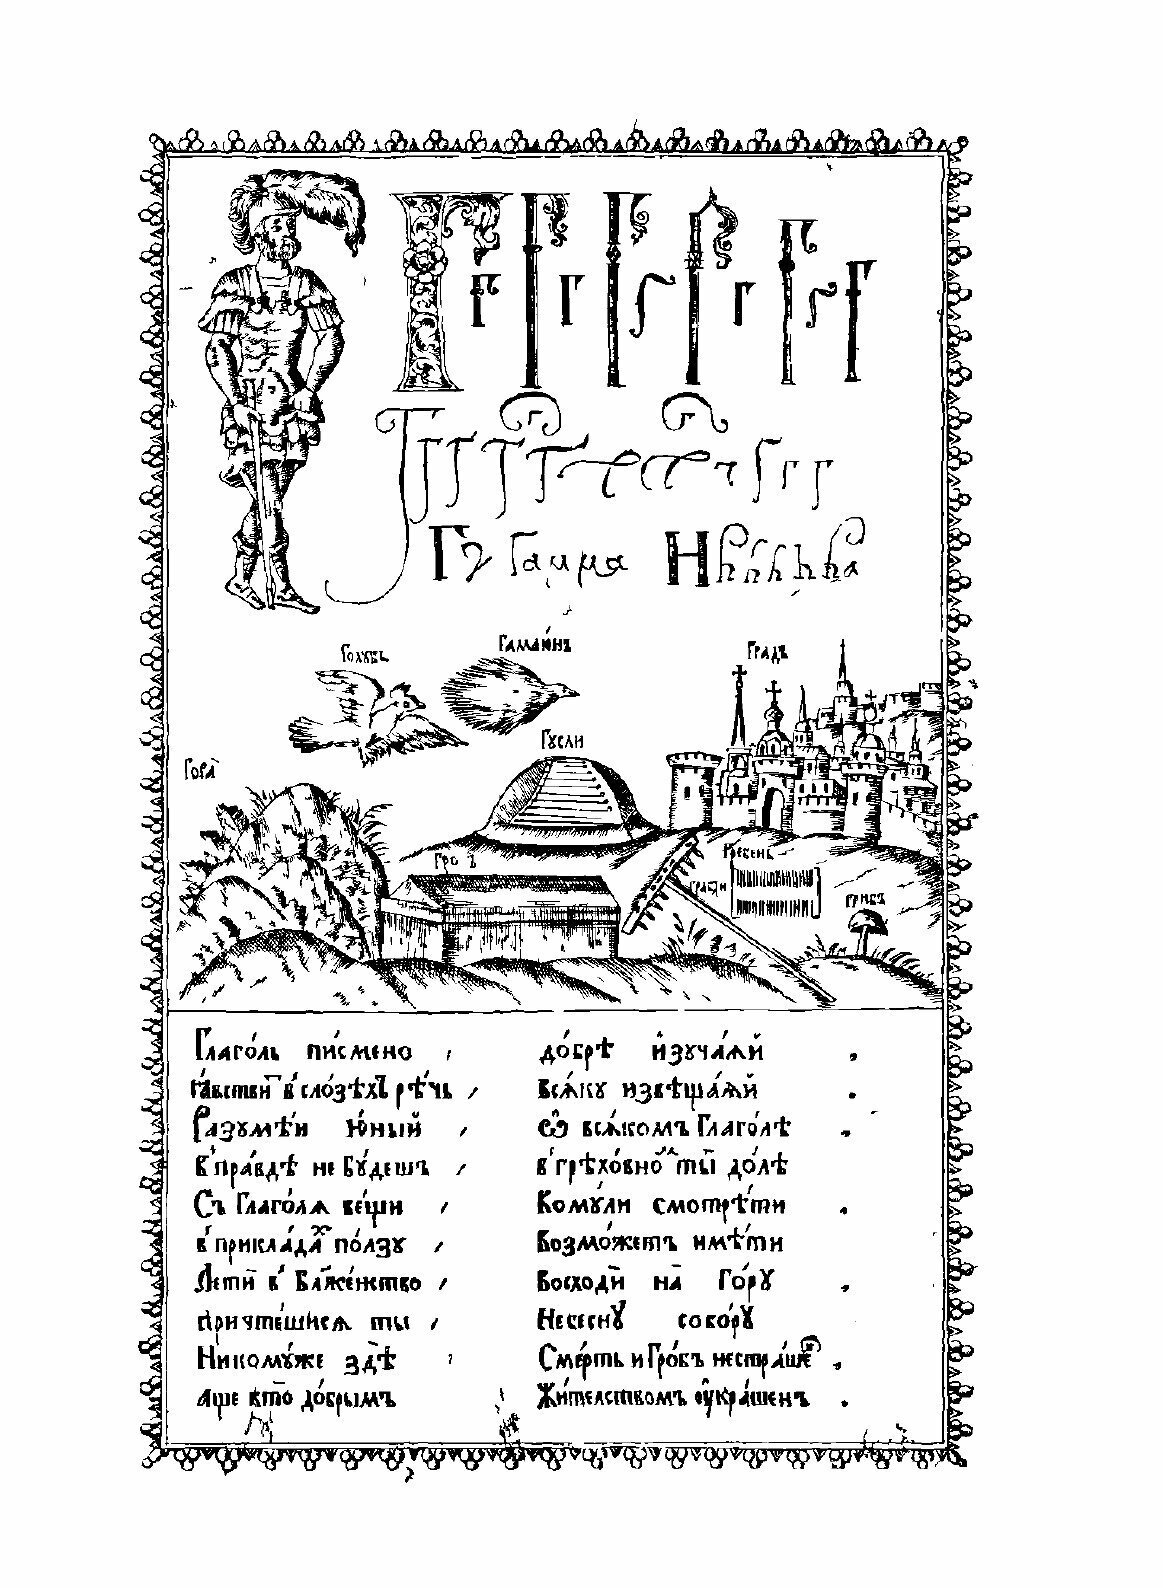 Г Г Г Г Г Г Г Г Г Г Г
Г Г Г Г Г Г Г Г Г Г Г Г Г
Гγ Гамма Н
Голꙋбь Гамаюнъ Градъ
Гора Гꙋсли
Гробъ Гребень
Грабли Грибъ
Глаго́ль пи́смено , до́брѣ изꙋча́ѧй ,
в̾ сло́зѣхъ рѣ́чь , всѧ́кꙋ извѣща́ѧй .
Разꙋмѣ́й ю́ный , Ѽ всѧ́комъ Глаго́лѣ .
В̾пра́вдѣ не бꙋ́дешъ , в̾грѣхо́вно ты̀ до́лѣ
Съ Глаго́лѧ ве́щи , Комꙋ́ли смотрѣ́ти .
в̾ приклада́х по́лзꙋ , Возмо́жетъ имѣ́ти
Летѝ в̾ Блаже́нство , Восходѝ на̀ Го́рꙋ ,
Причте́шисѧ ты , Небеснꙋ̀ собо́рꙋ
Никомꙋ́же здѣ̀ , Сме́рть и Гро́бъ нестра́шен ,
аще кто̀ до́брымъ Жи́телствомъ ᲂу҆кра́шенъ .